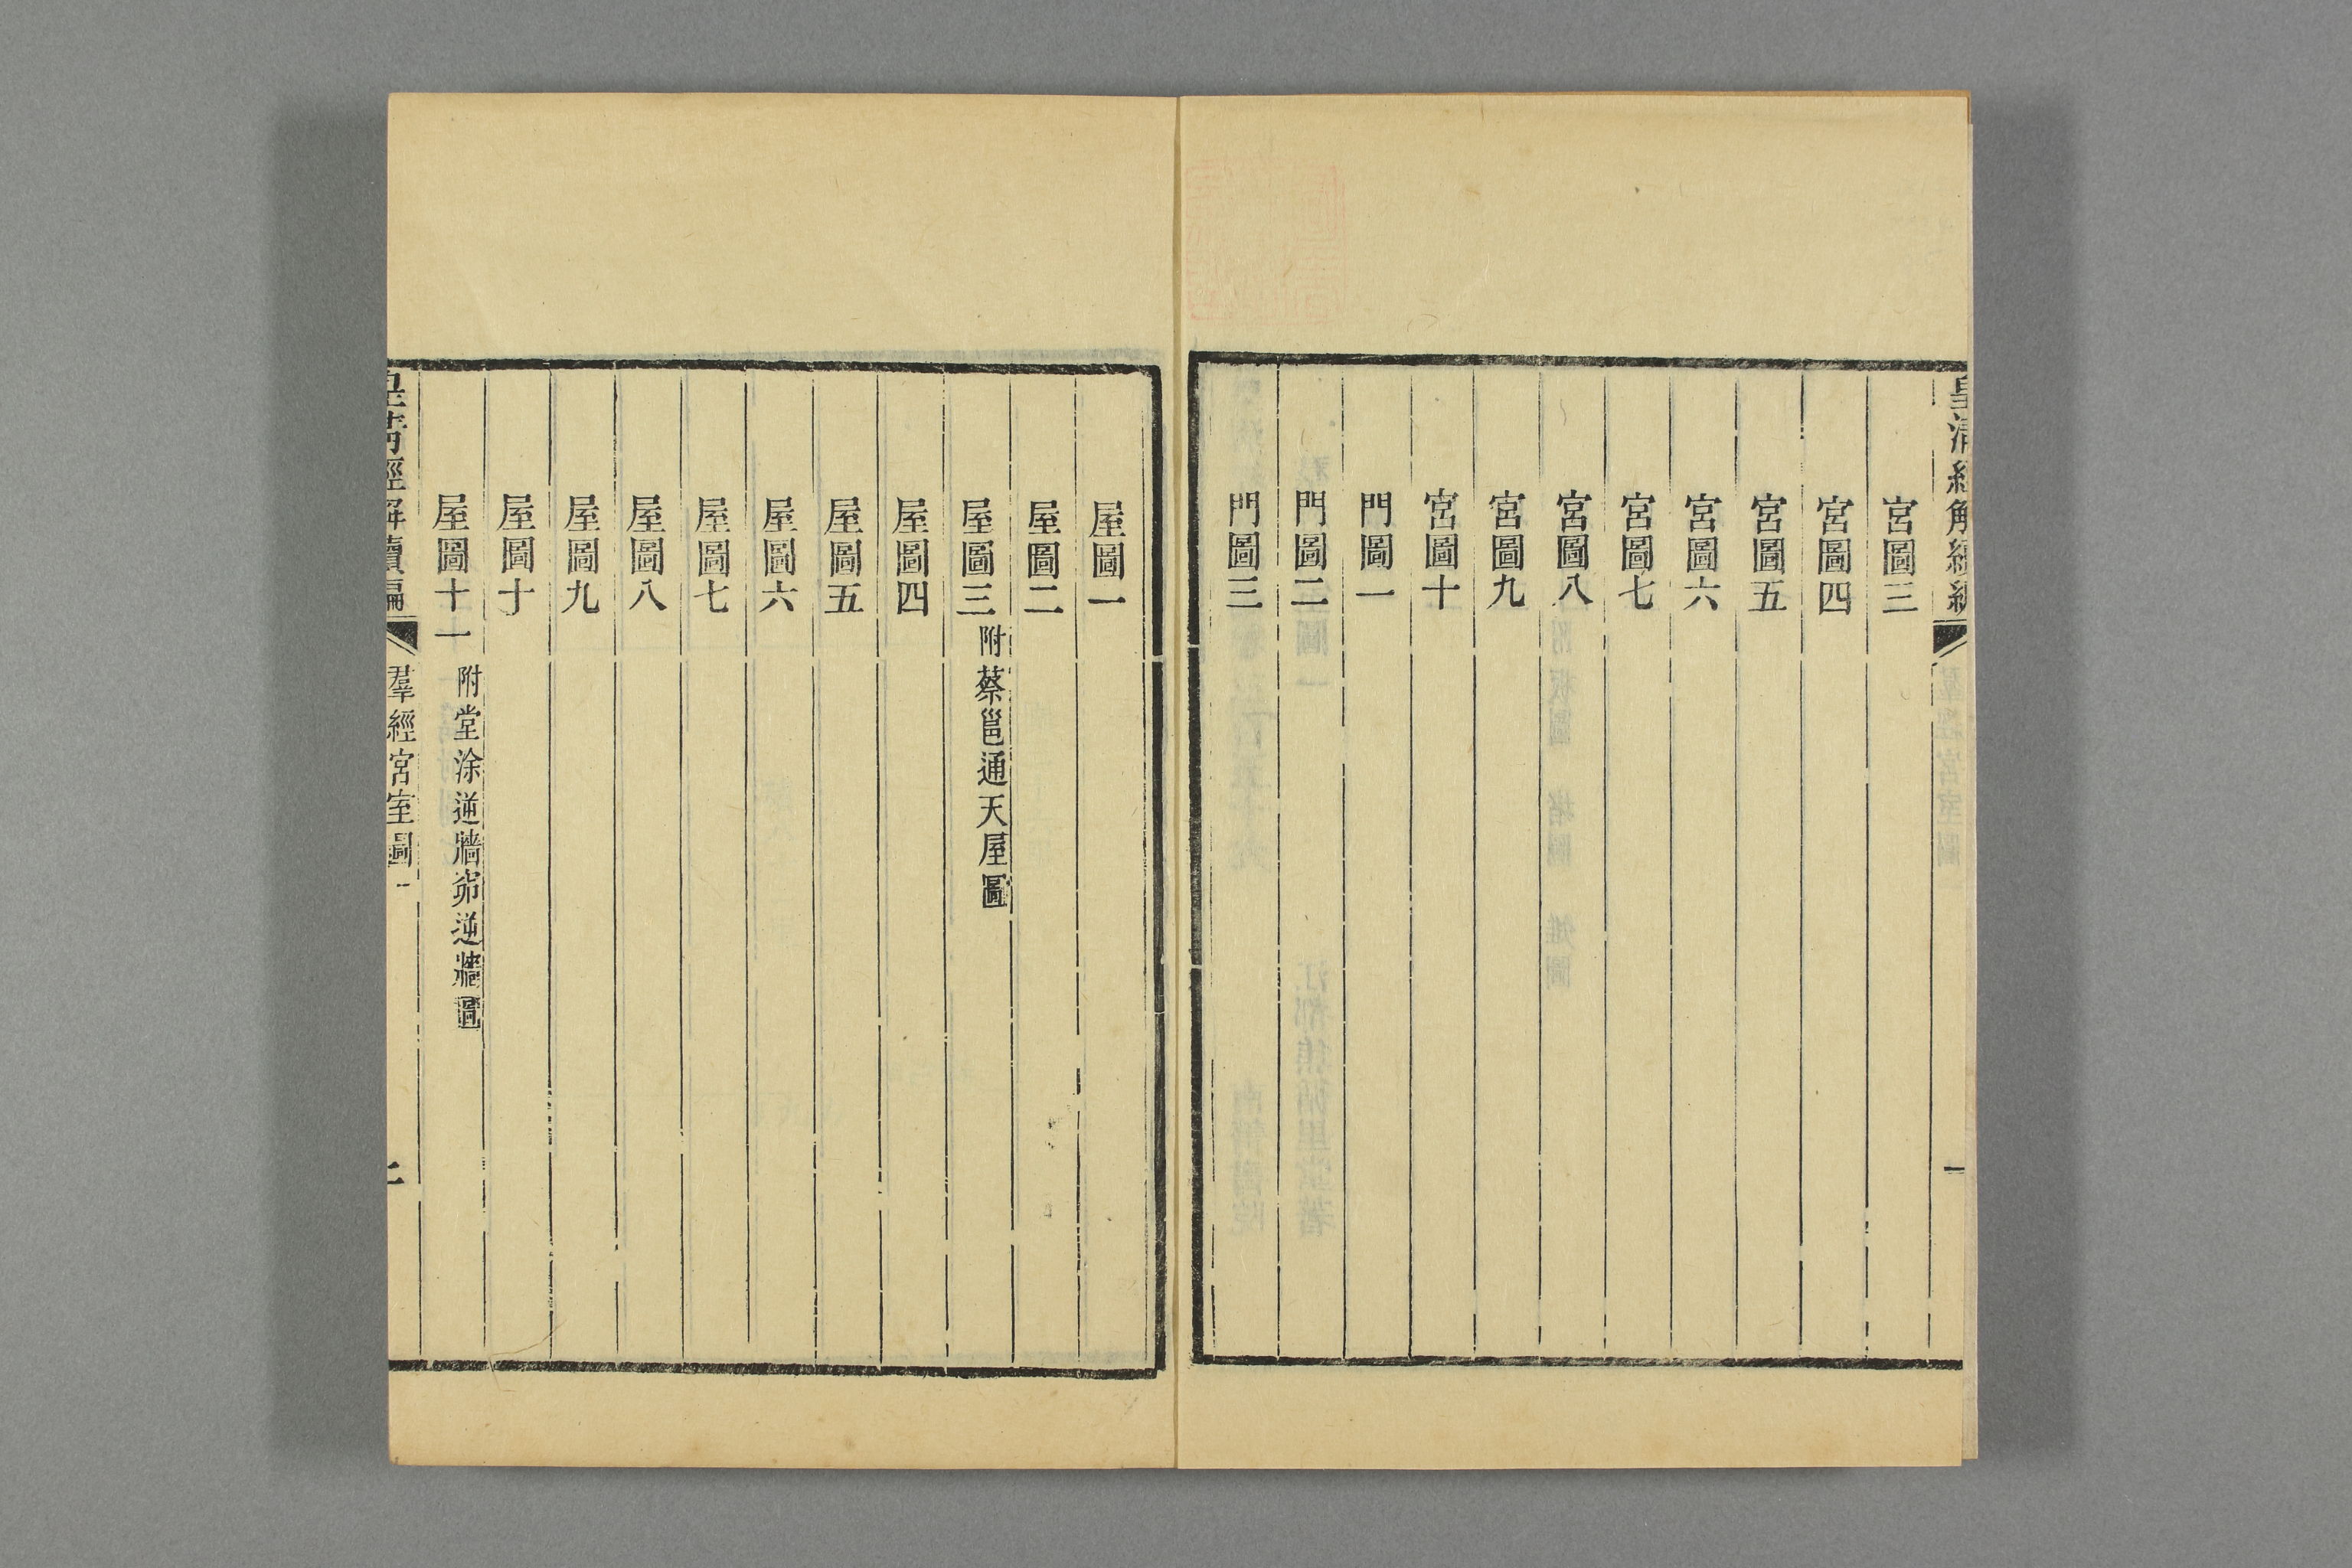 皇清經解續編
一
宮圖三
宮圖四
宮圖五
宮圖六
宮圖七
宮圖八
宮圖九
宮圖十
門圖一
門圖二
門圖三
屋圖一
屋圖二
屋圖三 附蔡邕通天屋圖
屋圖四
屋圖五
屋圖六
屋圖七
屋圖八
屋圖九
屋圖十
屋圖十一 附堂涂逆牆 逆牆圖
皇清經解續編 羣經宮室圖一 二